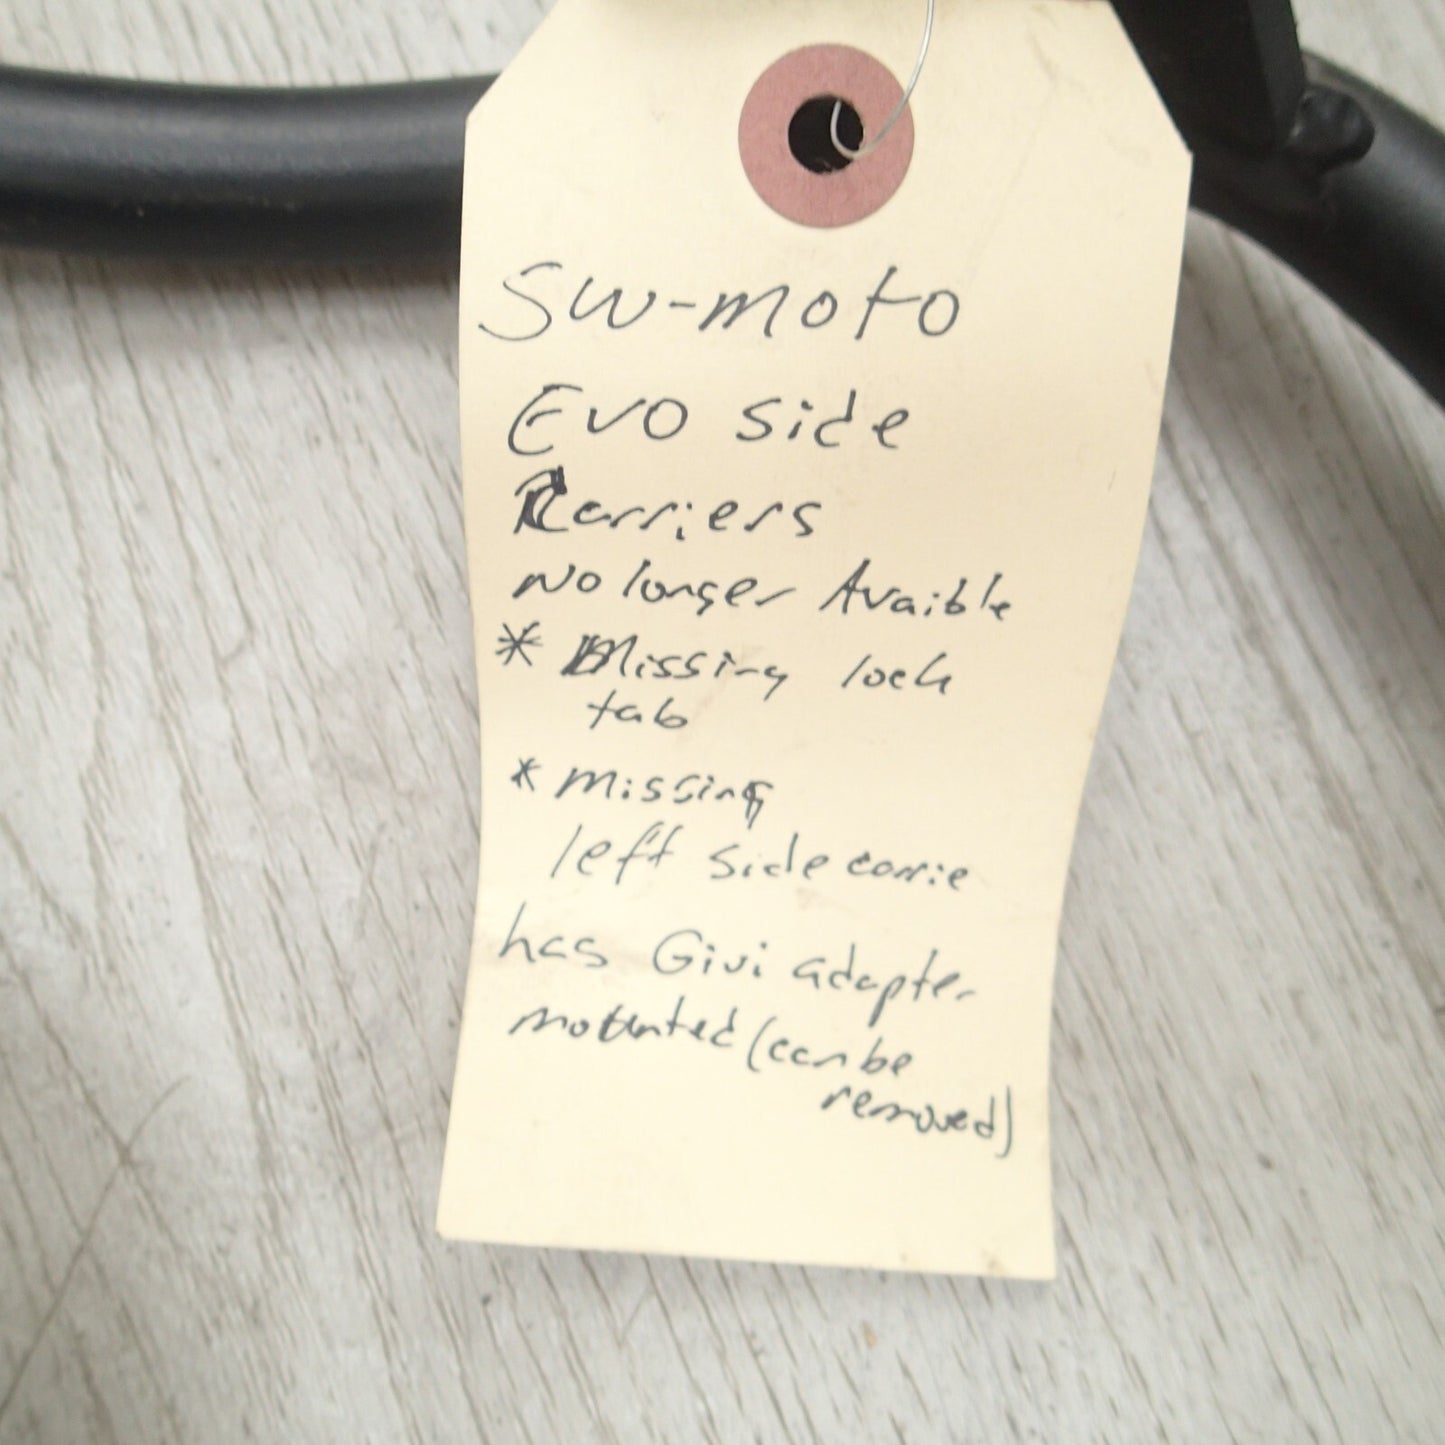 SW-moto
Evo side
Carriers
No longer Avaible
* Missing lock
tab
* missing
left side carrie
has Givi adapter
mounted (can be
removed)